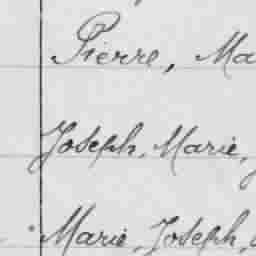 Pierre, Ma
Joseph, Marie,
Marie, Joseph,